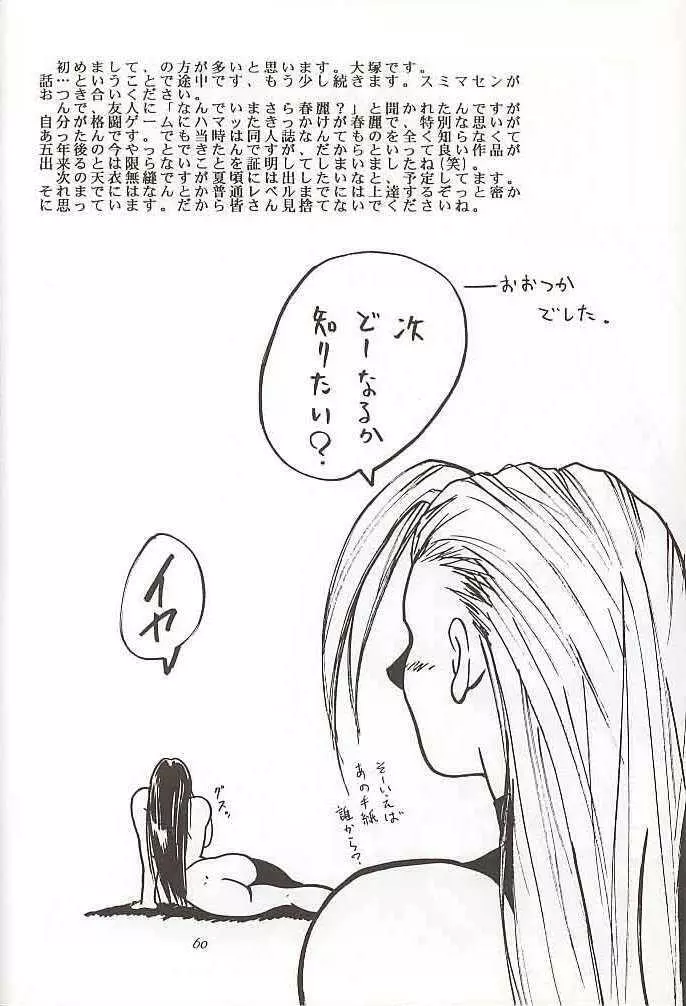 初めまして、の方が多いと思います。大塚です。
話…ということで途中です、もう少し続きます。スミマセンが
おつき合いください。
んで、友人に「なんでいまさら春麗?」と聞かれたんですが
自分が格闘ゲームにハマッたきっかけが春麗で、特別な思いが
あったんです。でも当時は同人誌なんてものを全く知らなくて
五年後の今やっとできたんですが、だからといって良い作品が
出来るとは限らないことを証明してしまいましたね(笑)。
次の天衣無縫ですが夏頃には出したいなと、予定してます。
それまでにはなんとか普通レベルまでには上達するぞっと密か
に思っています。だから皆さん見捨てないでくださいね。
―おおつか
でした。
次
どーなるか
知りたい?
イヤ
グスッ
そーいえば
あの手紙
誰から?
60